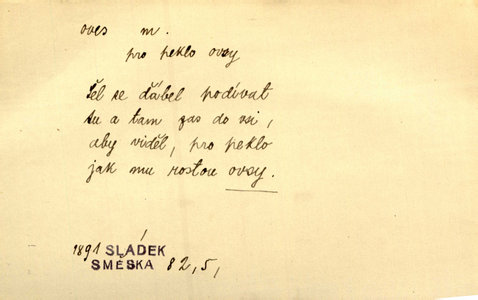 oves m.
pro peklo ovsy
Šel se ďábel podívat
tu a tam zas do vsi,
aby viděl, pro peklo
jak mu rostou ovsy.
1891 SLÁDEK
SMĚSKA 82,5,